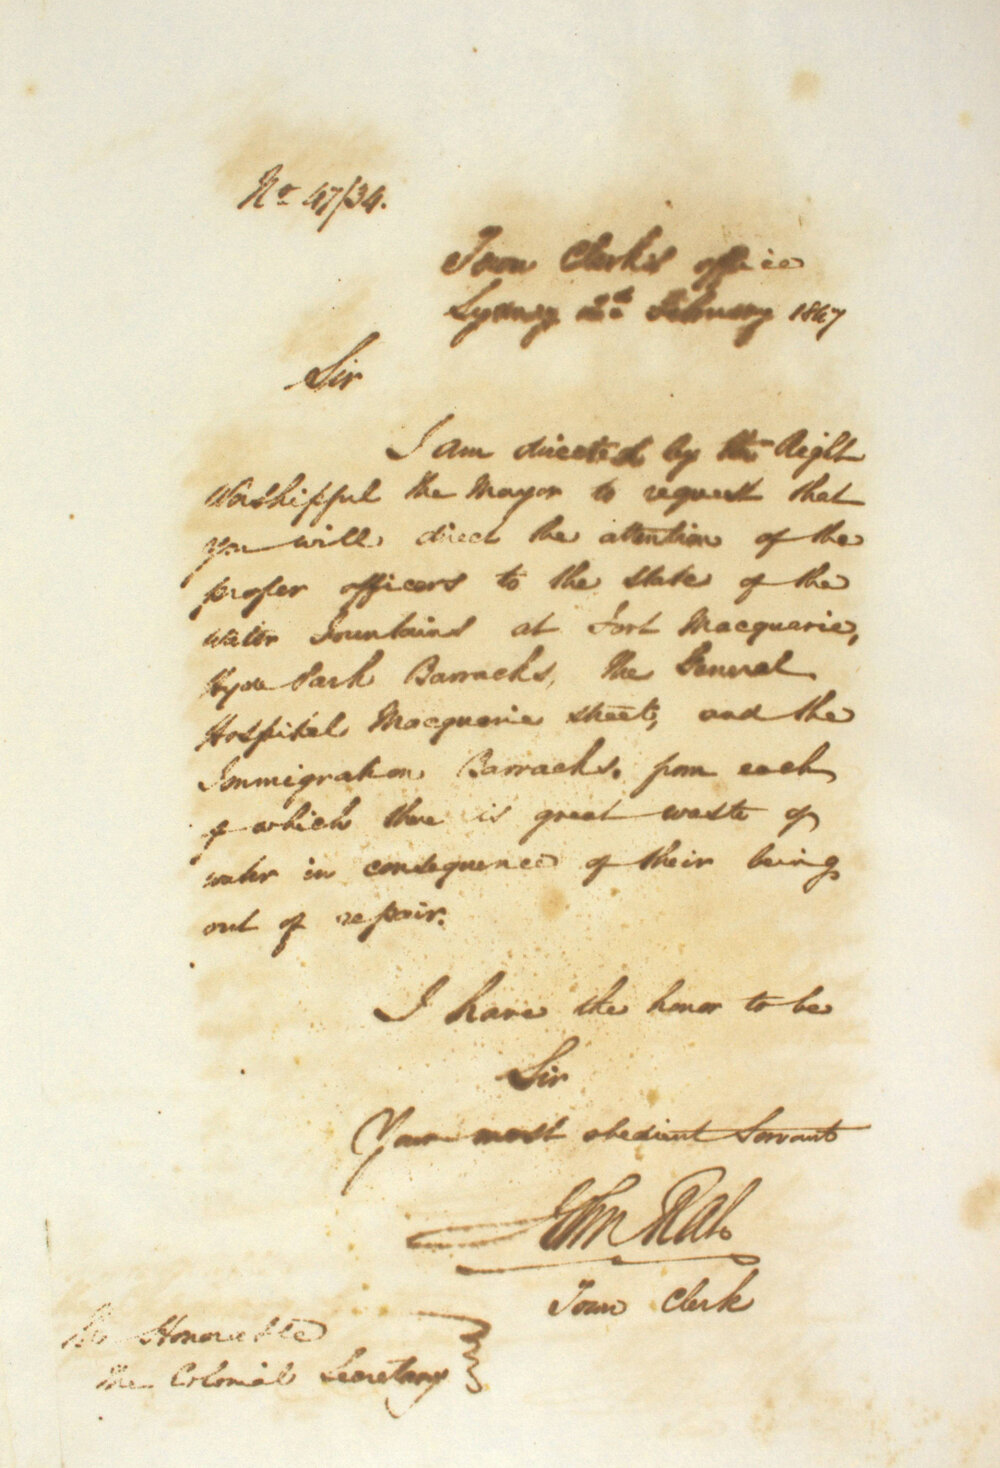 No 47/34.
Town Clerk's office
Sydney February 1847
Sir
I am directed by the Right
Worshipful the Mayor to request that
you will direct the attention of the
proper officers to the state of the
water Fountains at Fort Macquarie,
Hyde Park Barracks, the General
Hospital Macquarie street, and the
Immigration Barracks. from each
of which there is great waste of
water in consequence of their being
out of repair.
I have the honor to be
Sir
Your most obedient Servant
John
Town Clerk
Honorable
The Colonial Secretary